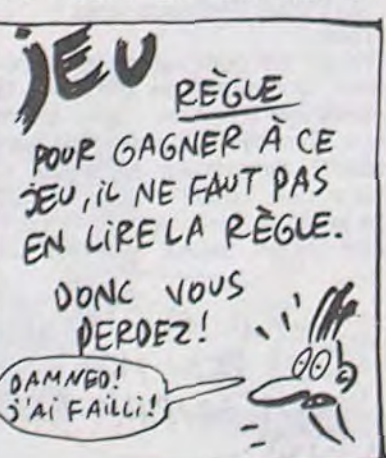 JEU
RÈGLE
POUR GAGNER À CE
JEU, IL NE FAUT PAS
EN LIRE LA RÈGLE.
DONC VOUS
PERDEZ!
DAMNED!
J'AI FAILLI!